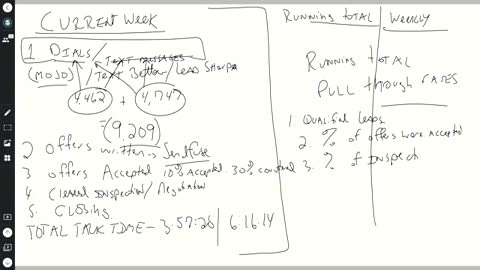 CURRENT WEEK
1 DIALS/ TEXT MESSAGES
(MOJO) Text Better/Lead Sherpa
4,462 + 4,747
=(9,209)
2 offers written - Sendfuse
3 offers Accepted 10% Accepted 30% counter
4 Cleared INSPECTION/Negotiation
5. CLOSING
TOTAL TALK TIME - 3:57:26 | 6:16:14
RUNNING TOTAL | Weekly
RUNNING TOTAL
PULL through RATES
1. QUALIFIED LEADS
2. % of offers were Accepted
3. % of INSPECTI